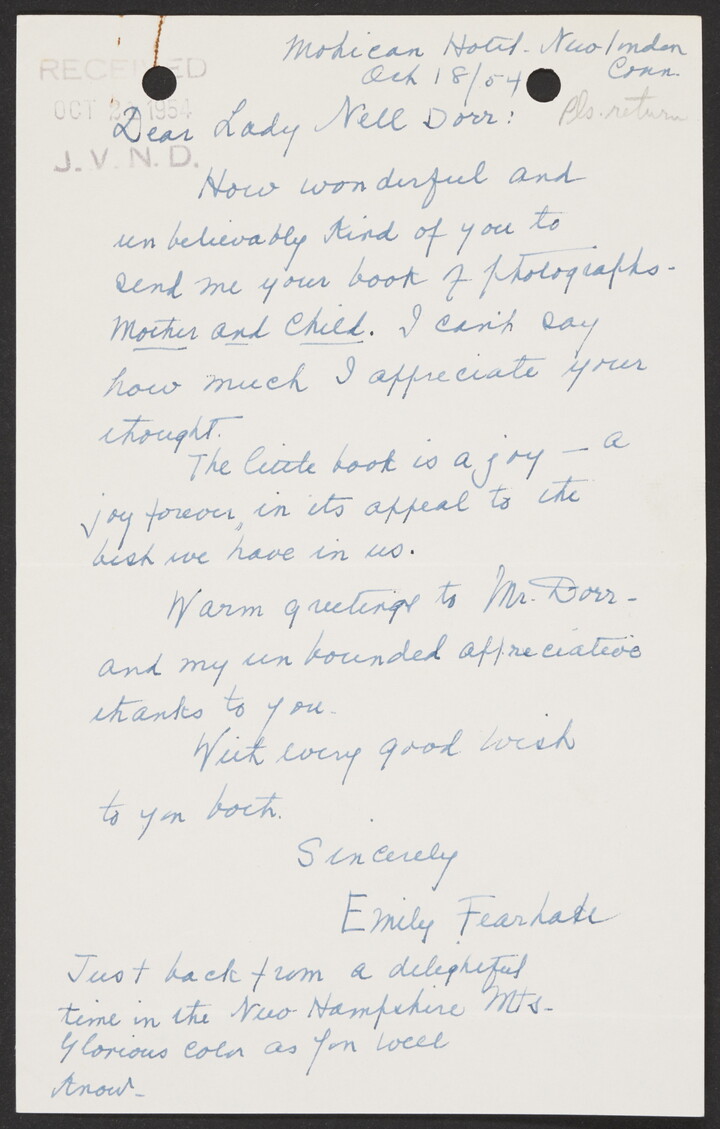 Mohican Hotel. New London
Conn.
Oct 18/54
RECEIVED
OCT 2 1954
J. V. N. D.
Pls. return
Dear Lady Nell Dorr:
How wonderful and
unbelievably kind of you to
send me your book of photographs-
Mother and Child. I can't say
how much I appreciate your
thought.
The little book is a joy – a
joy forever, in its appeal to the
best we have in us.
Warm greetings to Mr. Dorr-
and my unbounded appreciative
thanks to you-
With every good wish
to you both.
Sincerely
Emily
Just back from a delightful
time in the New Hampshire Mts-
Glorious color as you well
know-